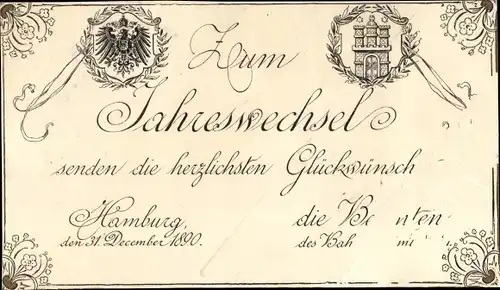 Zum
Jahreswechsel
senden die herzlichsten Glückwünsch
Hamburg,
den 31. December 1890.
die
des